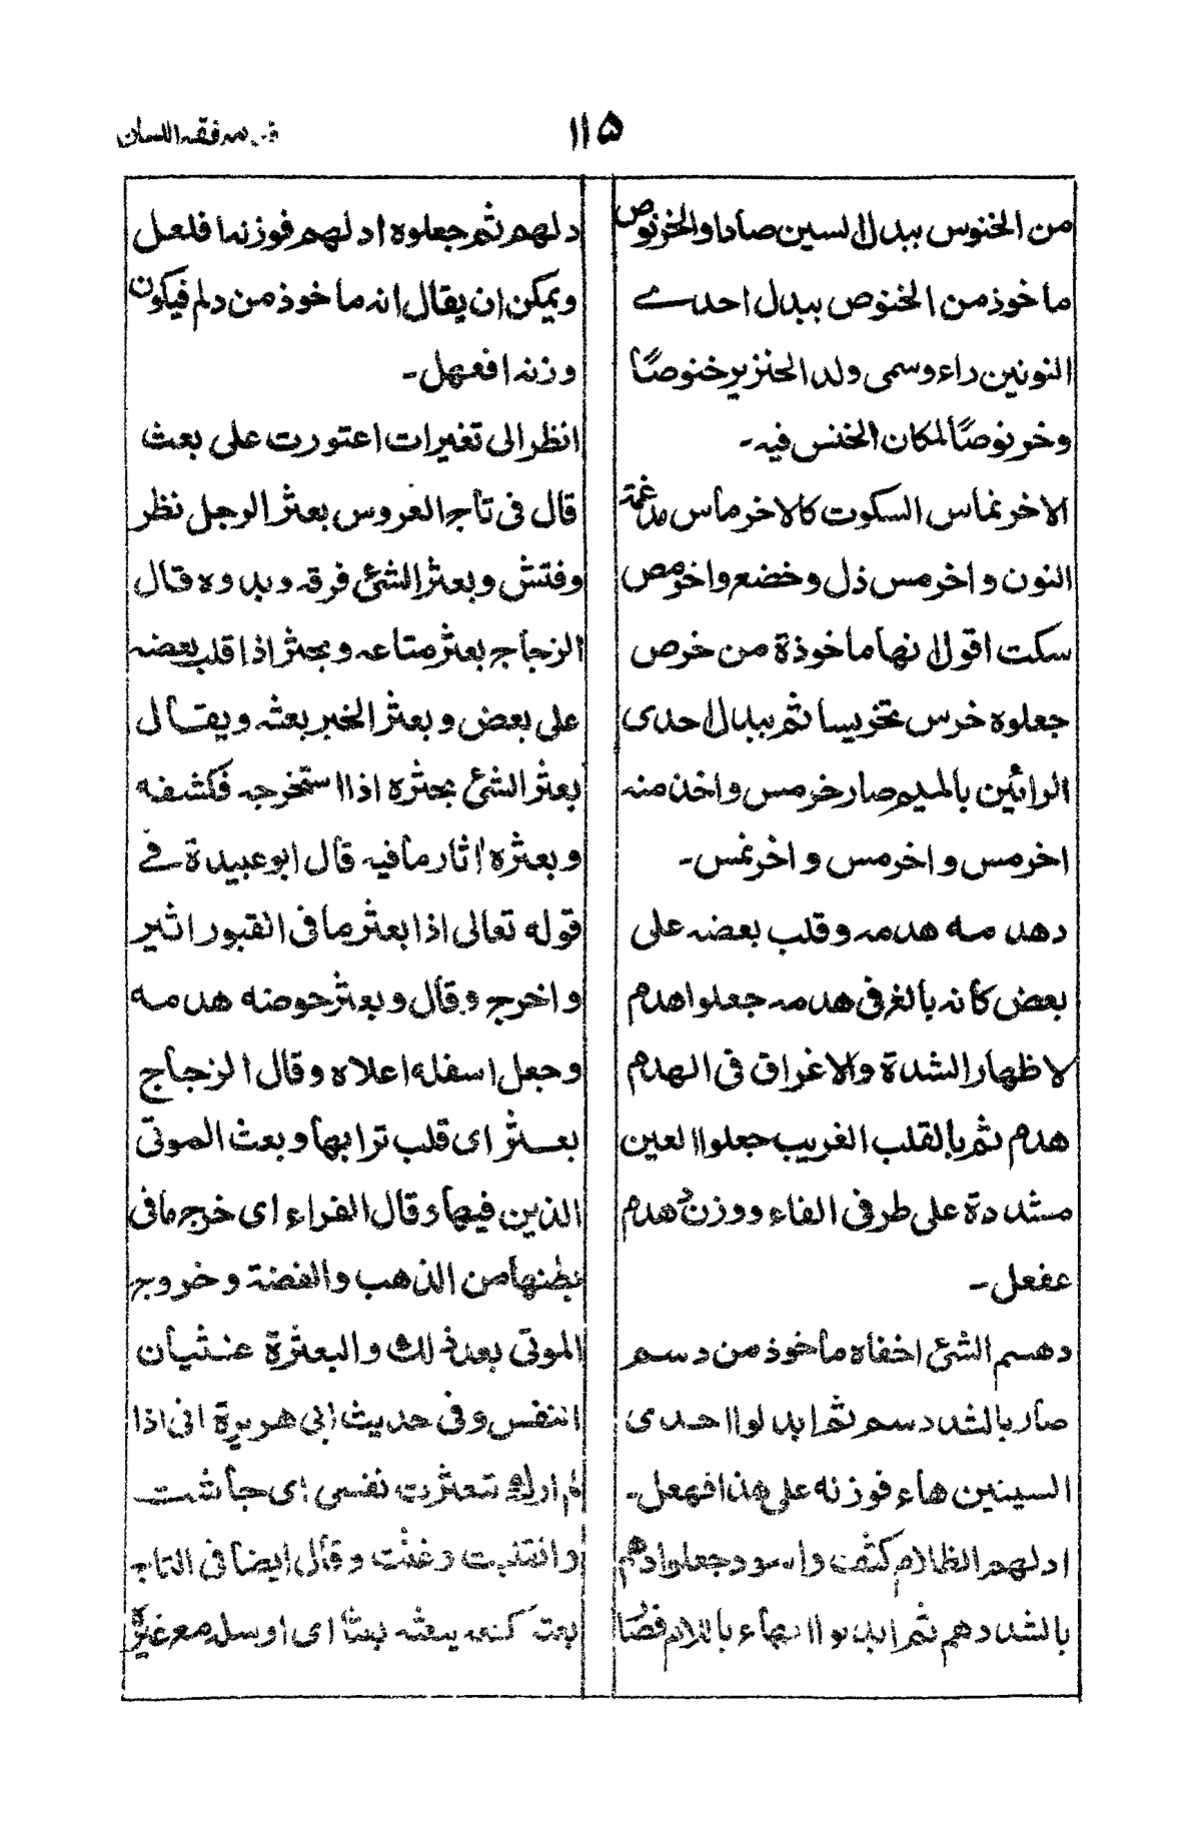 ۱۱۵
فقه اللسان
من الخنوس ببدل السين صادا والخرنوص
ماخوذ من الخنوص ببدل احدے
النونين راء وسمى ولد الخنزير خنوصًا
وخرنوصًا لمكان الخنس فيه۔
الاخرنماس السكوت كالاخرماس مدغمة
النون واخرمس ذل وخضع واخرمص
سكت اقول انها ماخوذة من خرص
جعلوه خرس تخريسا ثم ببدل احدى
الرائين بالميم صار خرمس واخذ منه
اخرمس واخرمس واخرنمس۔
دهدمه هدمه وقلب بعضه على
بعض كانه بالغ فى هدمه جعلوا هدم
لاظهار الشدة والاغراق فى الهدم
هدم ثم بالقلب الغريب جعلوا العين
مشددة على طرفى الفاء ووزن دهدم
عفعل۔
دهسم الشئ اخفاه ماخوذ من دسم
صار بالشد دسم ثم ابدلوا احدى
السينين هاء فوزنه على هذا فهعل۔
ادلهم الظلام كثف واسود جعلوا ادهم
بالشد دهم ثم ابدلوا الهاء باللام فصار
دلهم ثم جعلوه ادلهم فوزنها فلعل
ويمكن ان يقال انه ماخوذ من دلم فيكون
وزنه افعهل۔
انظر الى تغيرات اعتورت على بعث
قال فى تاج العروس بعثر الرجل نظر
وفتش وبعثر الشئ فرقه وبدده قال
الزجاج بعثر متاعه وبحثر اذا قلب بعضه
على بعض وبعثر الخبر بعثه ويقال
بعثر الشئ بحثره اذا استخرجه فكشفه
وبعثره اثار مافيه قال ابوعبيدة فے
قوله تعالى اذا بعثر ما فى القبور اثير
واخرج وقال وبعثر حوضه هدمه
وجعل اسفله اعلاه وقال الزجاج
بعثر اى قلب ترابها وبعث الموتى
الذين فيها وقال الفراء اى خرج مافى
بطنها من الذهب والفضة وخروج
الموتى بعد ذلك والبعثرة غثيان
النفس وفى حديث ابى هريرة انى اذا
لم ارك تبعثرت نفسى اى جاشت
وانقلبت وغثت وقال ايضا فى التاج
بعث كمنعه يبعثه بعثا اى ارسله مع غيره